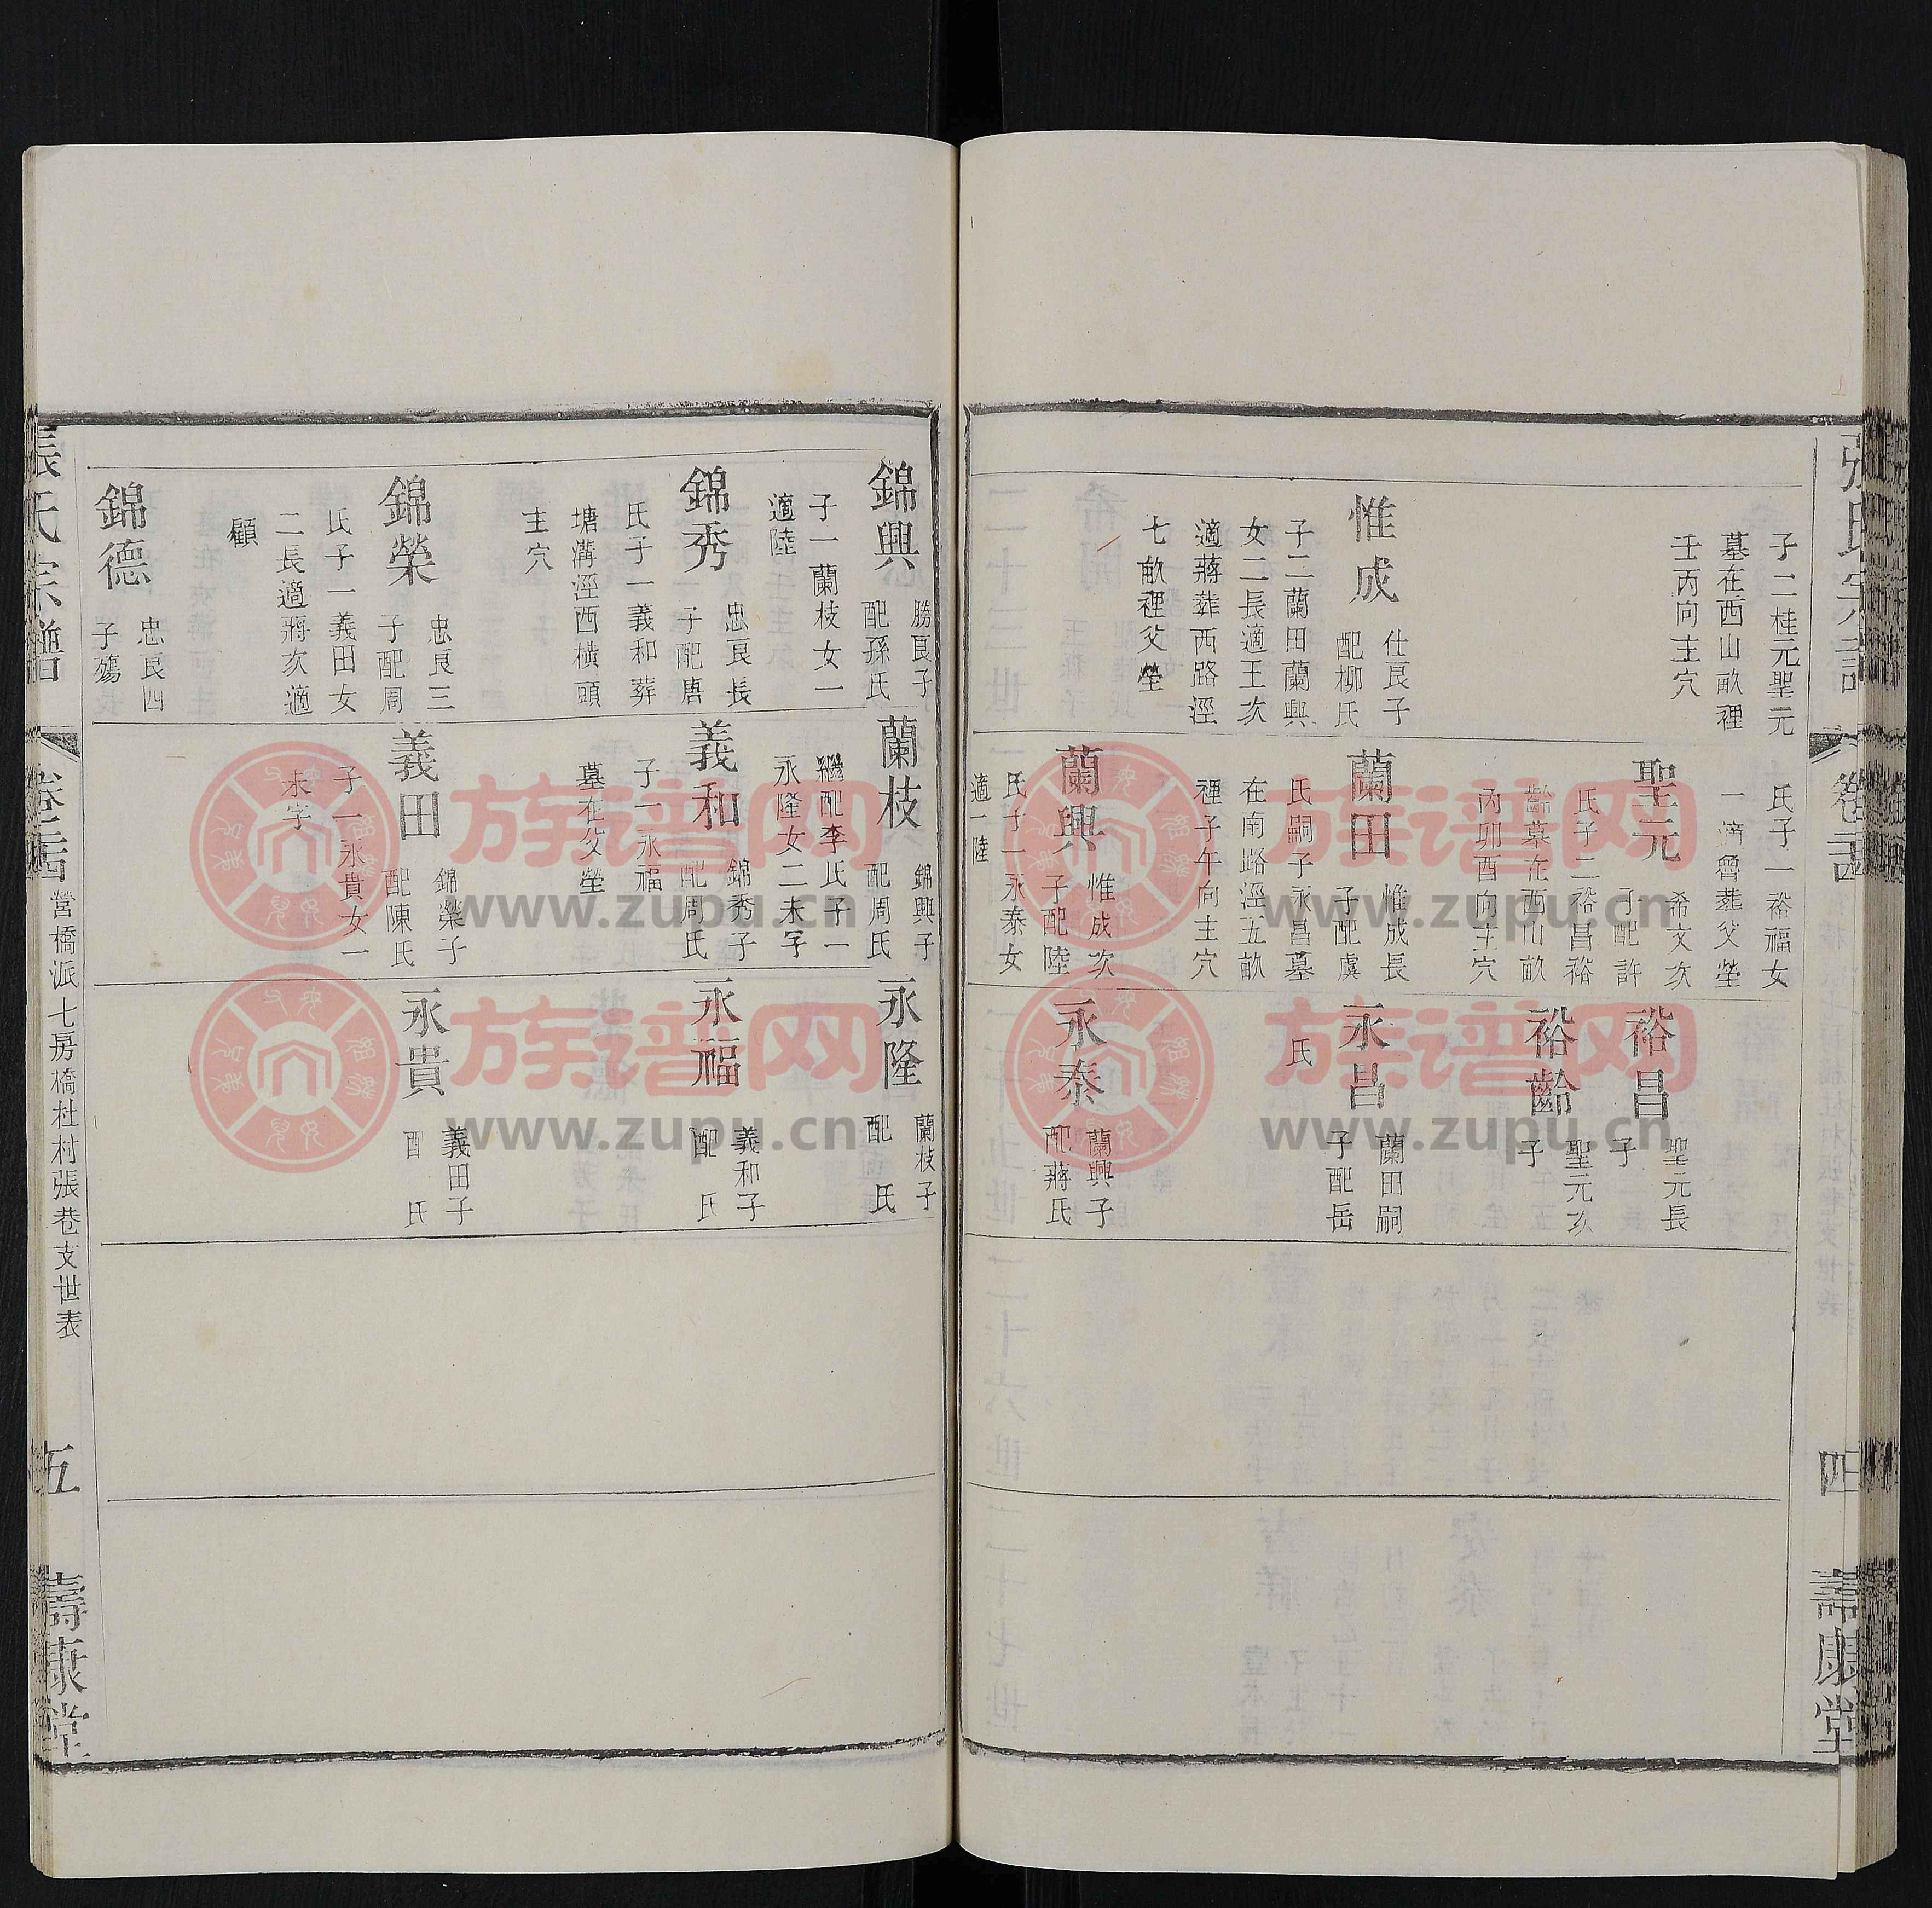 子二桂元聖元
墓在西山畝裡
壬丙向主穴
惟成
仕良子
配柳氏
子二蘭田蘭興
女二長適王次
適蔣葬西路涇
七畝裡父塋
氏子一裕福女
一適曾葬父塋
聖元
希文次
子配許
氏子二裕昌裕
齡墓在西山畝
丙卯酉向主穴
蘭田
惟成長
子配虞
氏嗣子永昌墓
在南路涇五畝
裡子午向主穴
蘭興
惟成次
子配陸
氏子一永泰女
適一陸
裕昌
聖元長
子
裕齡
聖元次
子
永昌
蘭田嗣
子配岳
氏
永泰
蘭興子
配蔣氏
四
壽康堂
錦興
勝良子
配孫氏
子一蘭枝女一
適陸
錦秀
忠良長
子配唐
氏子一義和葬
塘溝涇西橫頭
主穴
錦榮
忠良三
子配周
氏子一義田女
二長適蔣次適
顧
錦德
忠良四
子殤
蘭枝
錦興子
配周氏
繼配李氏子一
永隆女二未字
義和
錦秀子
配周氏
子一永福
墓在父塋
義田
錦榮子
配陳氏
子一永貴女一
未字
永隆
蘭枝子
配 氏
永福
義和子
配 氏
永貴
義田子
配 氏
張氏宗譜
營橋派七房橋杜村張巷支世表
五
壽康堂
族谱网
www.zupu.cn
族谱网
www.zupu.cn
族谱网
www.zupu.cn
族谱网
www.zupu.cn